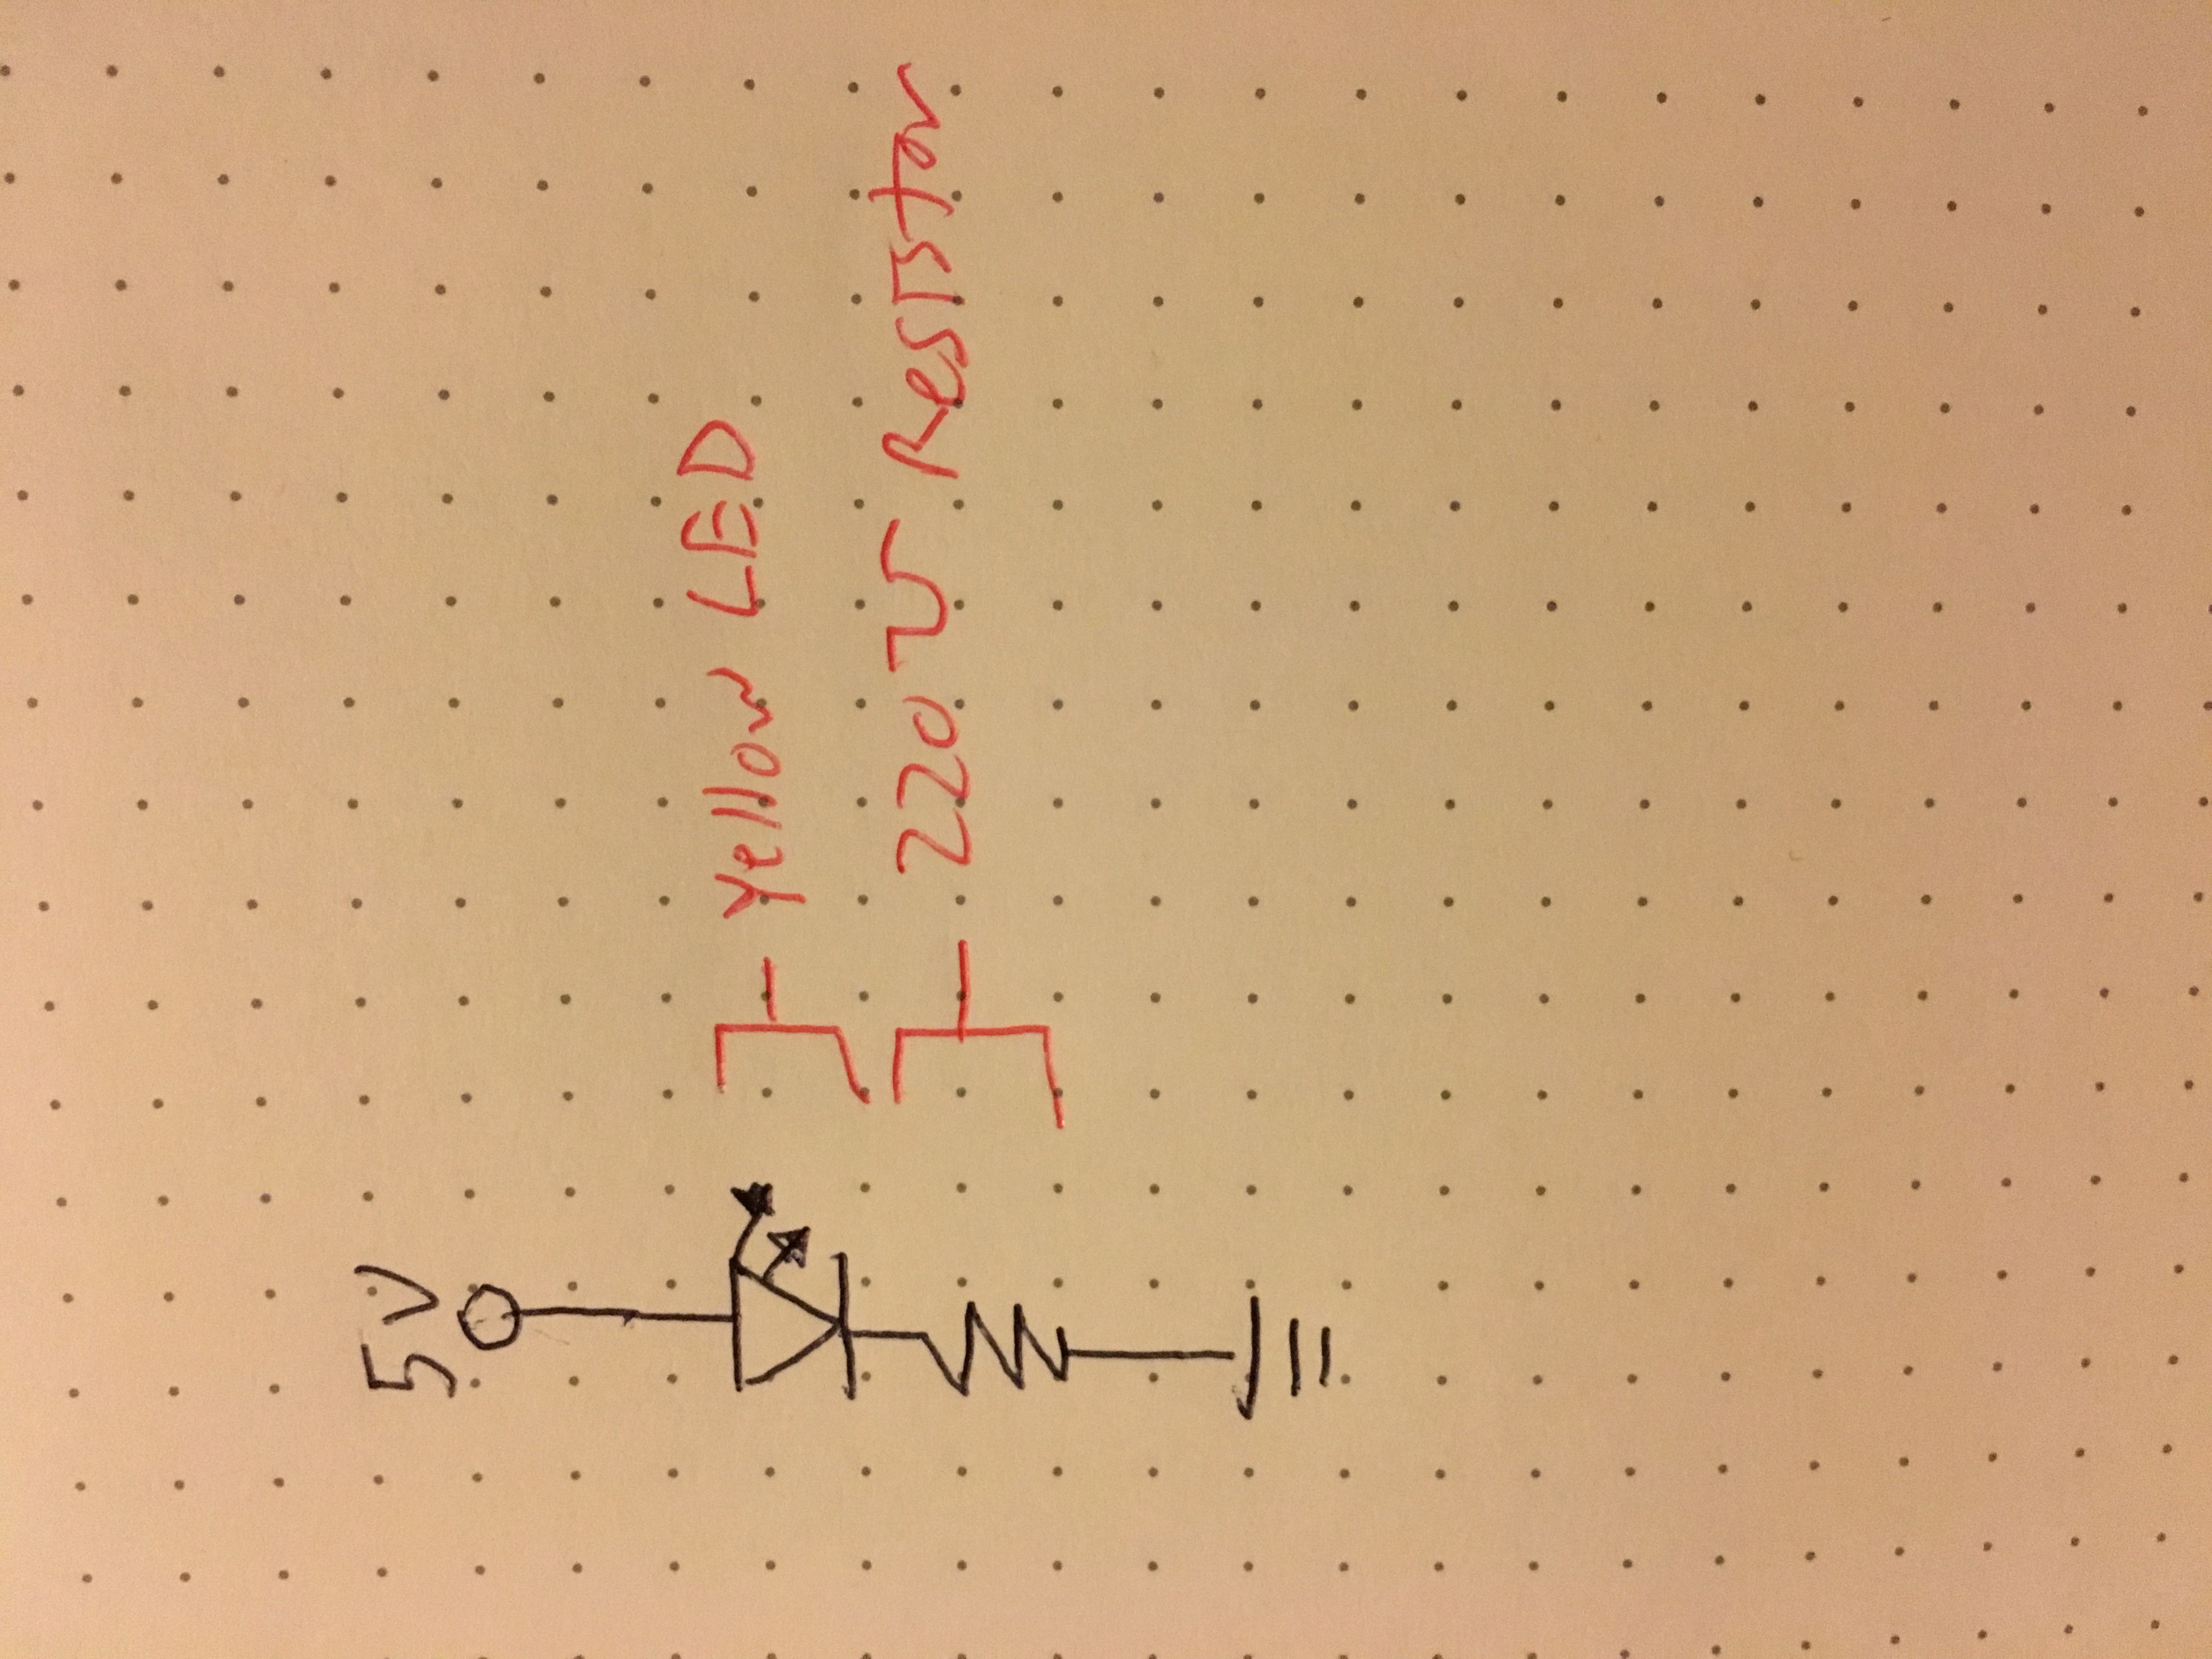 5V
Yellow LED
220 ℧ Resistor